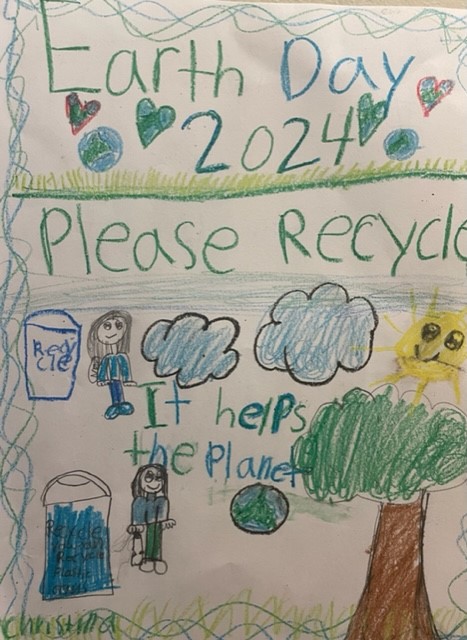 Earth Day
2024
Please Recycle
Recycle
It helps
the Planet
Recycle
christina